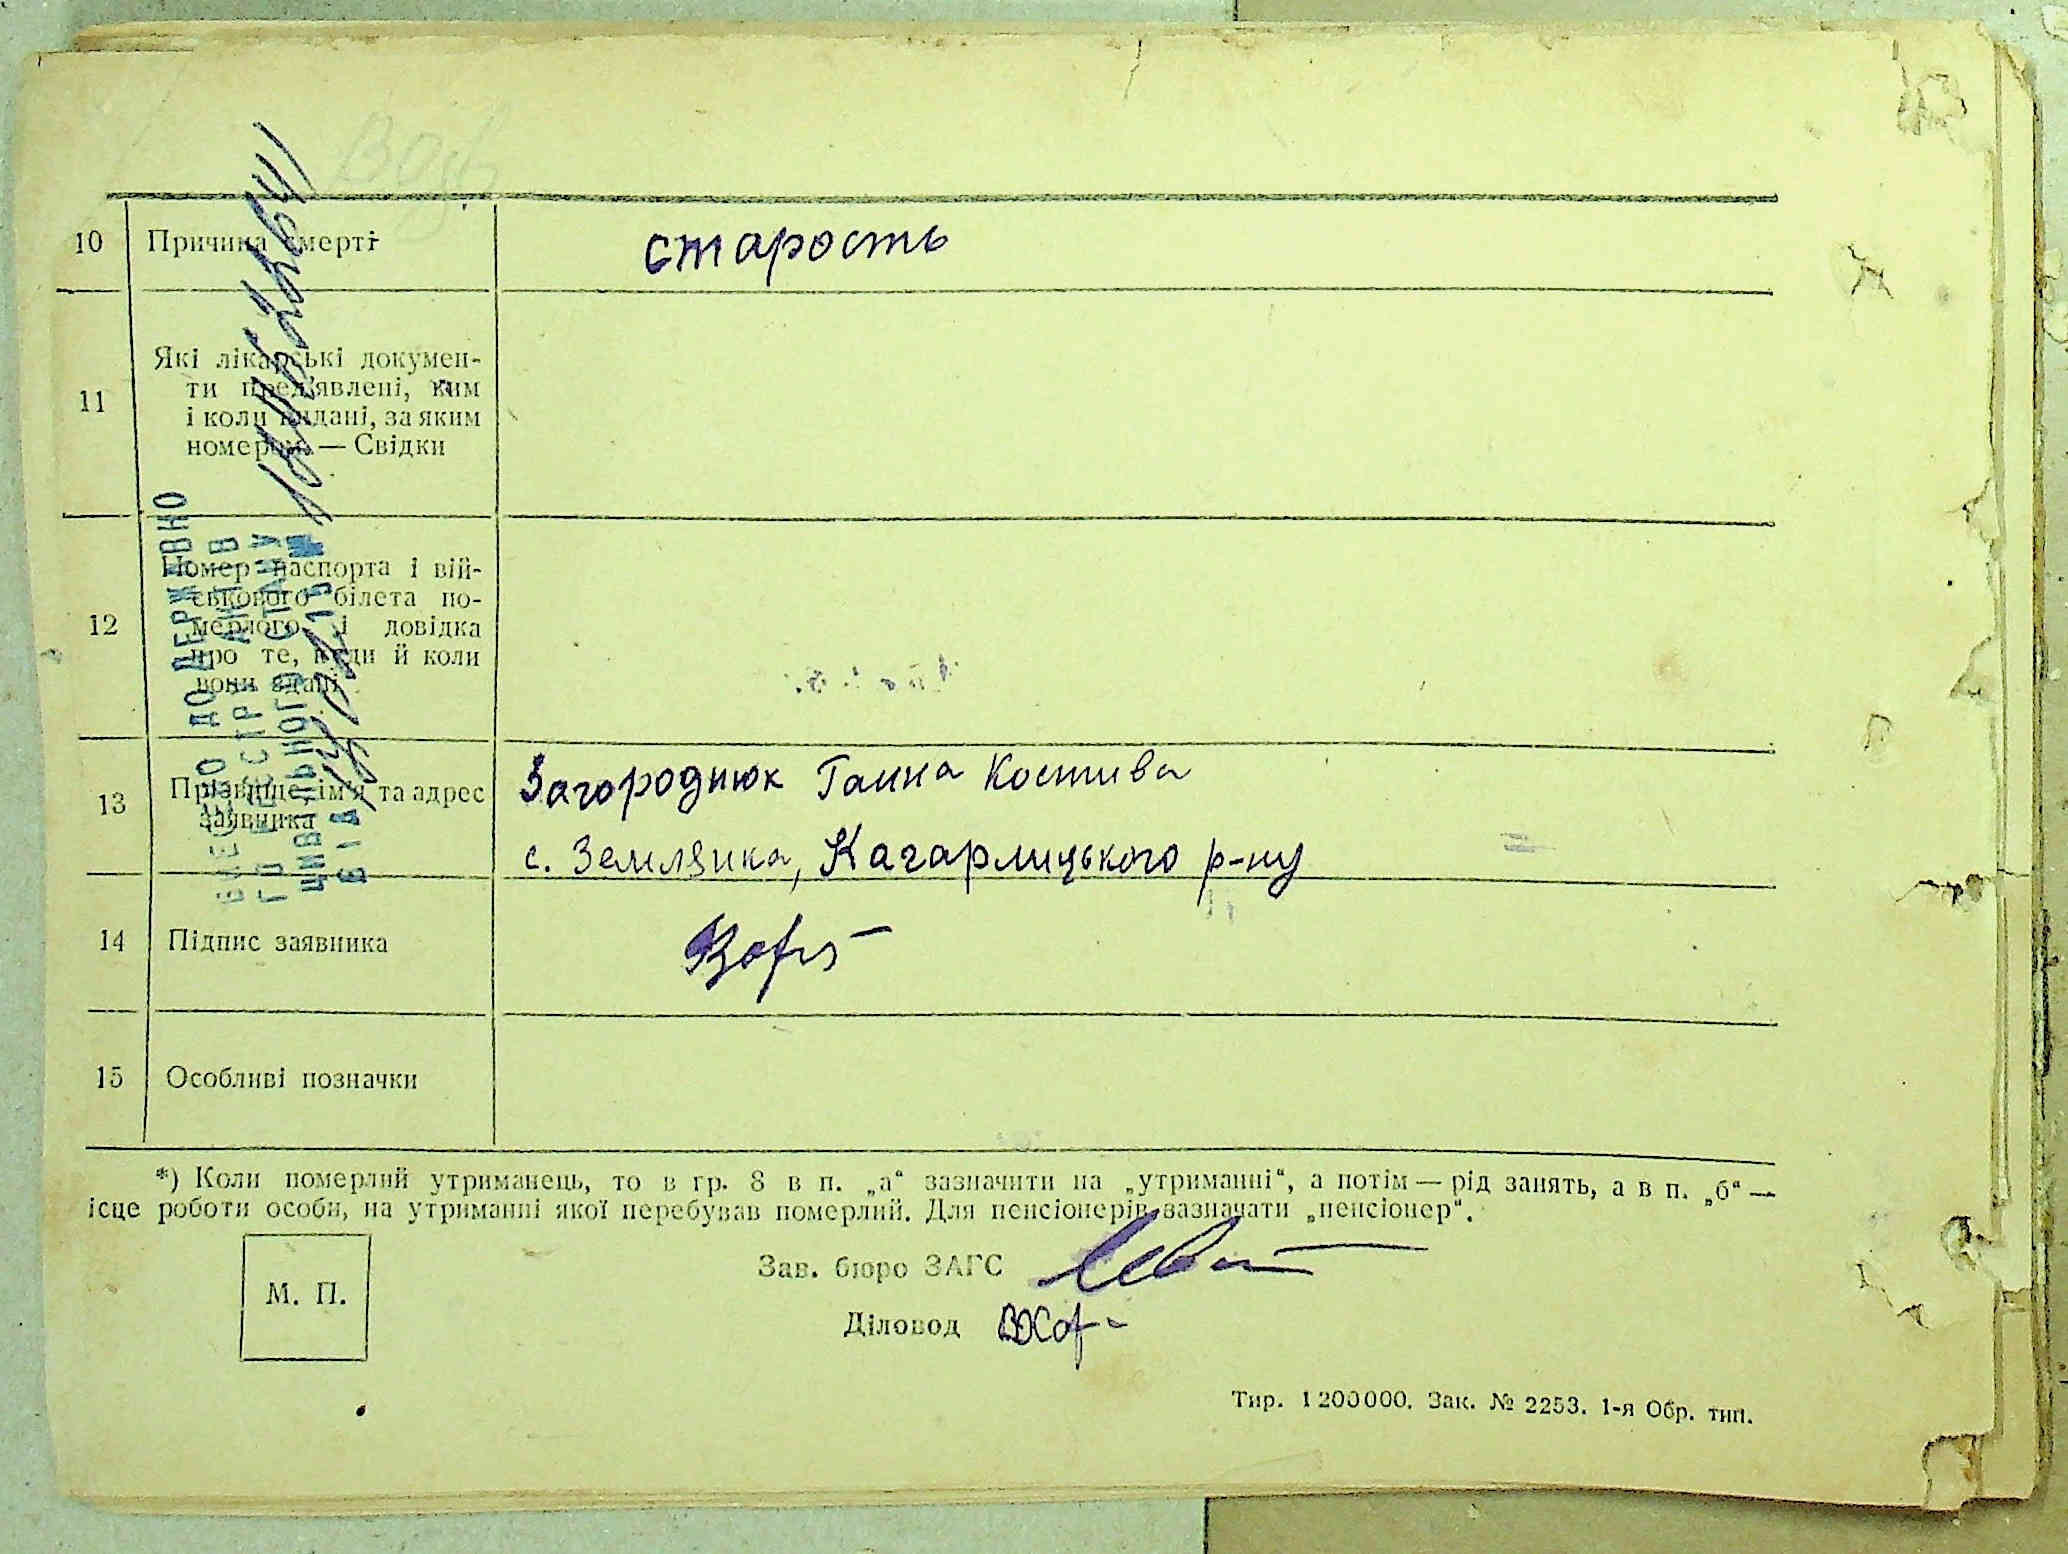 10 Причина смерті старость
11 Які лікарські докумен-
ти пред'явлені, ким
і коли видані, за яким
номером. — Свідки
12 Номер паспорта і вій-
ськового білета по-
мерлого і довідка
про те, куди й коли
вони здані
13 Прізвище, ім'я та адрес
заявника
Загороднюк Ганна Костива
с. Землянка, Кагарлицького р-ну
14 Підпис заявника
15 Особливі позначки
ВНЕСЕНО ДО ДЕРЖАВНО
ГО РЕЄСТРУ АКТІВ
ЦИВІЛЬНОГО СТАНУ
ВІД
*) Коли померлий утриманець, то в гр. 8 в п. „а“ зазначити на „утриманні“, а потім — рід занять, а в п. „б“ —
ісце роботи особи, на утриманні якої перебував померлий. Для пенсіонерів зазначати „пенсіонер“.
М. П.
Зав. бюро ЗАГС
Діловод
Тир. 1 200 000. Зак. № 2253. 1-я Обр. тип.